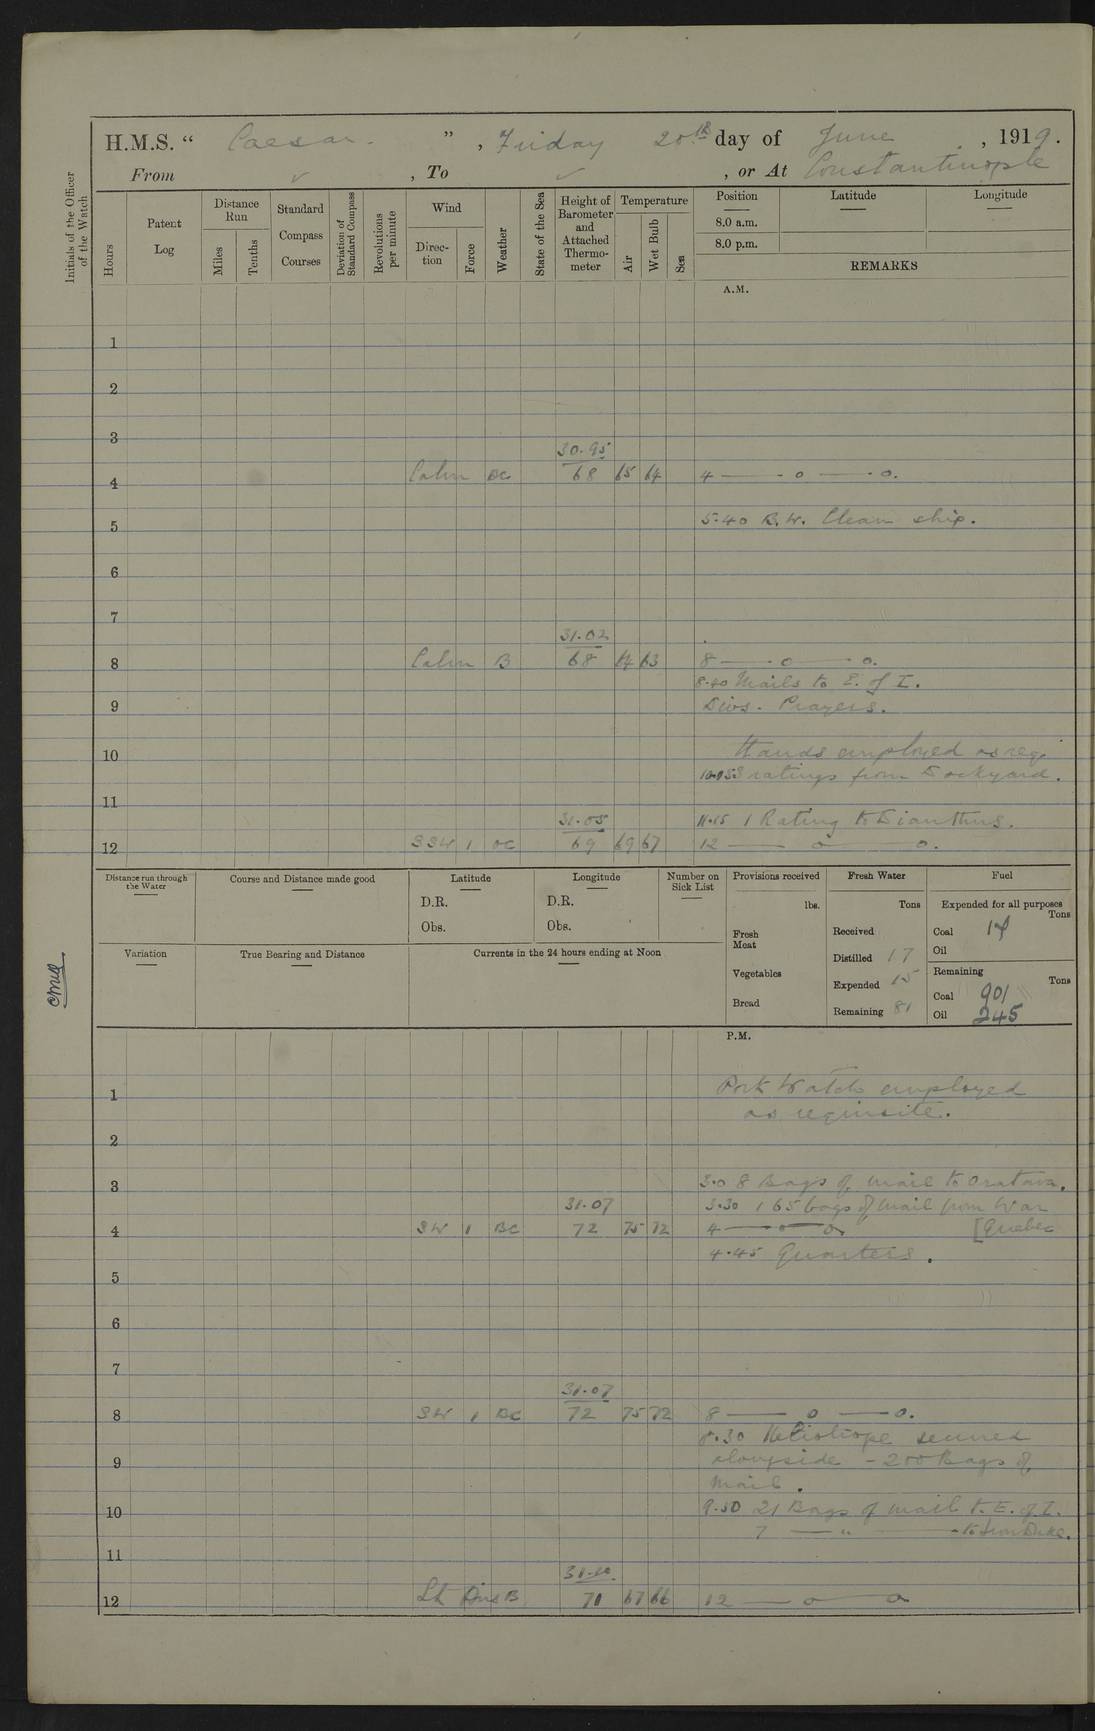 H.M.S. “ Caesar. ” , Friday 20th day of June , 1919.
From ✓ , To ✓ , or At Constantinople
Initials of the Officer of the Watch
Hours
Patent Log
Distance Run
Miles
Tenths
Standard Compass Courses
Deviation of Standard Compass
Revolutions per minute
Wind
Direction
Force
Weather
State of the Sea
Height of Barometer and Attached Thermometer
Temperature
Air
Wet Bulb
Sea
Position
Latitude
Longitude
8.0 a.m.
8.0 p.m.
REMARKS
A.M.
1
2
3
30.95
4 Calm OC 68 65 64 4 — o — o.
5 5.40 B.W. Clean ship.
6
7
31.02
8 Calm B 68 64 63 8 — o — o.
8.40 Mails to E. of I.
9 Divs. Prayers.
10 Hands employed as req.
ratings from Dockyard.
11
31.05 11.15 1 Rating to Dianthus.
12 SSW 1 OC 69 69 67 12 — o — o.
Distance run through the Water
Course and Distance made good
Latitude
D.R.
Obs.
Longitude
D.R.
Obs.
Number on Sick List
Provisions received
lbs.
Fresh Meat
Vegetables
Bread
Fresh Water
Tons
Received
Distilled 17
Expended 15
Remaining 81
Fuel
Expended for all purposes
Tons
Coal 14
Oil
Remaining
Tons
Coal 901
Oil 245
Variation
True Bearing and Distance
Currents in the 24 hours ending at Noon
P.M.
1 Port Watch employed
as requisite.
2
3 3.0 8 Bags of mail to Oratava.
31.07 3.30 165 bags of mail from War
4 SW 1 BC 72 75 72 4 — o — o [Quebec
4.45 Quarters.
5
6
7
31.07
8 SW 1 BC 72 75 72 8 — o — o.
8.30 Heliotrope secured
9 alongside - 200 Bags of
mail.
10 9.50 21 Bags of mail to E. of I.
7 — " — to Iron Duke.
11
31.10
12 Lt Airs B 70 67 66 12 — o — o